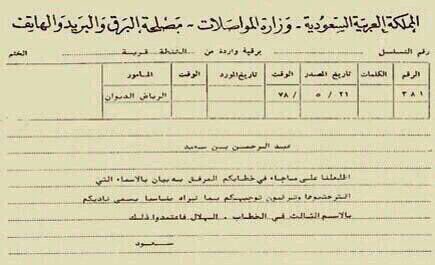 المملكة العربية السعودية - وزارة المواصلات - مصلحة البرق والبريد والهاتف
رقم التسلسل برقية واردة من النقطة قريبة الختم
الرقم الكلمات تاريخ المصدر الوقت تاريخ المورد الوقت المأمور
٣٨١ ٢١ / ٥ / ٧٨ الرياض الديوان
عبد الرحمن بن سعد
اطلعنا على ماجاء في خطابكم المرفق به بيان بالاسماء التي
اقترحتموها وترغبون توجيهكم بما نراه مناسبا يسمى ناديكم
بالاسم الثالث في الخطاب - الهلال فاعتمدوا ذلك
سعود